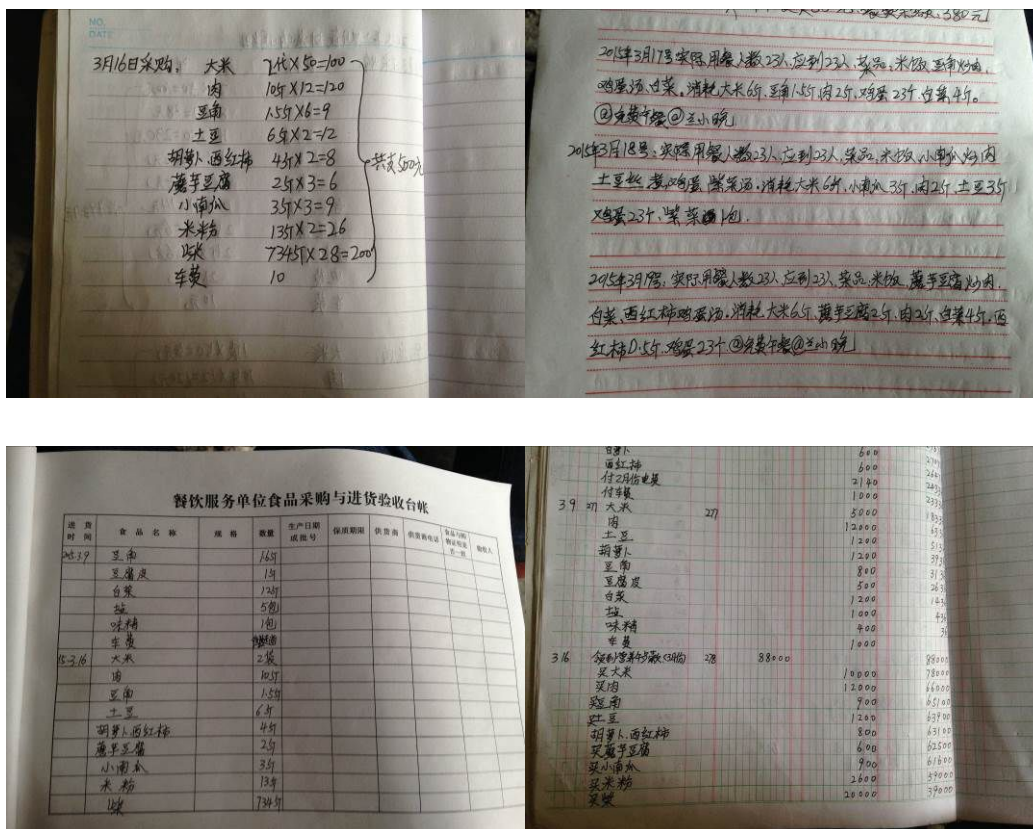 NO.
DATE
3月16日采购: 大米 2代×50=100
肉 10斤×12=120
豆角 1.5斤×6=9
土豆 6斤×2=12
胡萝卜.西红柿 4斤×2=8
蘑芋豆腐 2斤×3=6
小南瓜 3斤×3=9
米粉 13斤×2=26
柴 734斤×28=200
车费 10
共支500元
2015年3月17号实际用餐人数23人,应到23人,菜品,米饭,豆角炒肉,
鸡蛋汤,白菜。消耗大米6斤,豆角1.5斤,肉2斤,鸡蛋23个,白菜4斤。
@免费午餐@兰小晓
2015年3月18号,实际用餐人数23人,应到23人,菜品,米饭,小南瓜炒肉
土豆丝,煮鸡蛋,紫菜汤.消耗大米6斤,小南瓜3斤,肉2斤,土豆3斤
鸡蛋23个,紫菜1包.
2015年3月19号,实际用餐人数23人,应到23人,菜品,米饭,蘑芋豆腐炒肉,
白菜,西红柿鸡蛋汤.消耗大米6斤,蘑芋豆腐2斤,肉2斤,白菜4斤,西
红柿0.5斤.鸡蛋23个@免费午餐@兰小晓
餐饮服务单位食品采购与进货验收台帐
进货时间 食品名称 规格 数量 生产日期或批号 保质期限 供货商 供货商电话 验收人
豆角 1.6斤
豆腐皮 1斤
白菜 12斤
盐 5包
味精 1包
车费
15.3.16 大米 2袋
肉 10斤
豆角 1.5斤
土豆 6斤
胡萝卜.西红柿 4斤
蘑芋豆腐 2斤
小南瓜 3斤
米粉 13斤
柴 734斤
600
西红柿 600
付2月份电费 2140
付车费 1000
3 9 27 大米 27 5000
肉 12000
土豆 1200
胡萝卜 1200
豆角 800
豆腐皮 500
白菜 1200
盐 1000
味精 400
车费 1000
3 16 28 88000 88000
买大米 10000 78000
买肉 12000 66000
买豆角 900 65100
买土豆 1200 63900
胡萝卜.西红柿 800 63100
买蘑芋豆腐 600 62500
买小南瓜 900 61600
买米粉 2600 59000
买柴 20000 39000